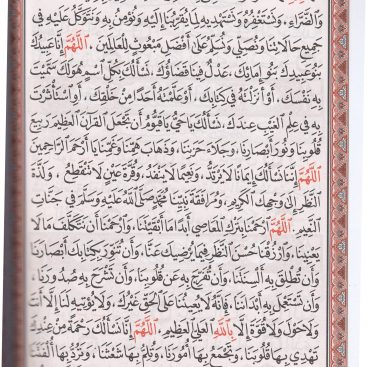 وَالضَّرَّاءِ، وَنَسْتَغْفِرُهُ وَنَسْتَهْدِيهِ لِمَا يُقَرِّبُنَا إِلَيْهِ وَنُؤْمِنُ بِهِ وَنَتَوَكَّلُ عَلَيْهِ فِي
جَمِيعِ حَالَاتِنَا وَنُصَلِّي وَنُسَلِّمُ عَلَى أَفْضَلِ مَبْعُوثٍ لِلْعَالَمِينَ. اَللَّهُمَّ إِنَّا عَبِيدُكَ
بَنُو عَبِيدِكَ بَنُو إِمَائِكَ، عَدْلٌ فِينَا قَضَاؤُكَ، نَسْأَلُكَ بِكُلِّ اسْمٍ هُوَ لَكَ سَمَّيْتَ
بِهِ نَفْسَكَ، أَوْ أَنْزَلْتَهُ فِي كِتَابِكَ، أَوْ عَلَّمْتَهُ أَحَدًا مِنْ خَلْقِكَ، أَوِ اسْتَأْثَرْتَ
بِهِ فِي عِلْمِ الْغَيْبِ عِنْدَكَ، نَسْأَلُكَ يَا حَيُّ يَا قَيُّومُ أَنْ تَجْعَلَ الْقُرْآنَ الْعَظِيمَ رَبِيعَ
قُلُوبِنَا وَنُورَ أَبْصَارِنَا، وَجَلَاءَ حُزْنِنَا، وَذَهَابَ هَمِّنَا وَغَمِّنَا يَا أَرْحَمَ الرَّاحِمِينَ.
اَللَّهُمَّ إِنَّنَا نَسْأَلُكَ إِيمَانًا لَا يَرْتَدُّ، وَنَعِيمًا لَا يَنْفَدُ، وَقُرَّةَ عَيْنٍ لَا تَنْقَطِعُ، وَلَذَّةَ
النَّظَرِ إِلَى وَجْهِكَ الْكَرِيمِ، وَمُرَافَقَةَ نَبِيِّنَا مُحَمَّدٍ صَلَّى اللهُ عَلَيْهِ وَسَلَّمَ فِي جَنَّاتِ
النَّعِيمِ. اَللَّهُمَّ ارْحَمْنَا بِتَرْكِ الْمَعَاصِي أَبَدًا مَا أَبْقَيْتَنَا، وَارْحَمْنَا أَنْ نَتَكَلَّفَ مَا لَا
يَعْنِينَا، وَارْزُقْنَا حُسْنَ النَّظَرِ فِيمَا يُرْضِيكَ عَنَّا، وَأَنْ تُنَوِّرَ بِكِتَابِكَ أَبْصَارَنَا
وَأَنْ تُطْلِقَ بِهِ أَلْسِنَتَنَا، وَأَنْ تُفَرِّجَ بِهِ عَنْ قُلُوبِنَا، وَأَنْ تَشْرَحَ بِهِ صُدُورَنَا،
وَأَنْ تَسْتَعْمِلَ بِهِ أَبْدَانَنَا، فَإِنَّهُ لَا يُعِينُنَا عَلَى الْحَقِّ غَيْرُكَ، وَلَا يُؤْتِيهِ لَنَا إِلَّا أَنْتَ
وَلَا حَوْلَ وَلَا قُوَّةَ إِلَّا بِاللهِ الْعَلِيِّ الْعَظِيمِ. اَللَّهُمَّ إِنَّا نَسْأَلُكَ رَحْمَةً مِنْ عِنْدِكَ
تَهْدِي بِهَا قُلُوبَنَا، وَتَجْمَعُ بِهَا أُمُورَنَا، وَتَلُمُّ بِهَا شَعَثَنَا، وَتَرُدُّ بِهَا أُلْفَتَنَا